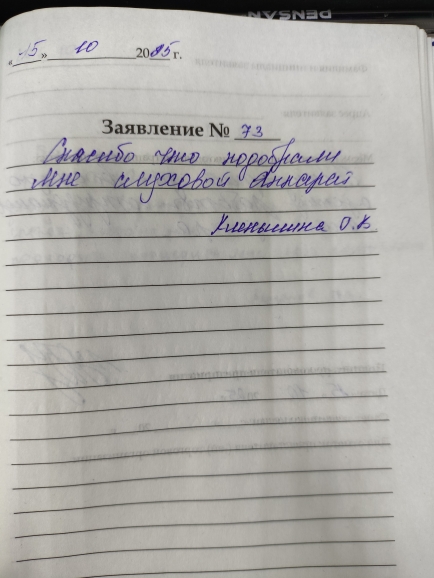 PENSAN
«15» 10 2025 г.
Заявление № 73
Спасибо что подобрали
мне слуховой аппарат
О.В.